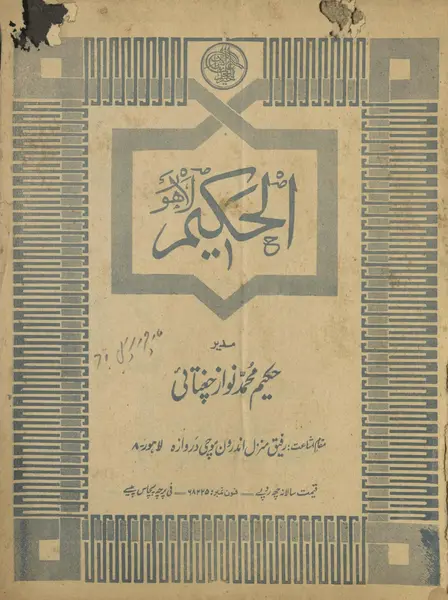 الحکیم لاہور
مدیر
حکیم محمد نواز چغتائی
مقام اشاعت: رفیق منزل اندرون موچی دروازہ لاہور-۸
قیمت سالانہ چھ روپے — فون نمبر: ۶۸۴۲۵ — فی پرچہ پچاس پیسے